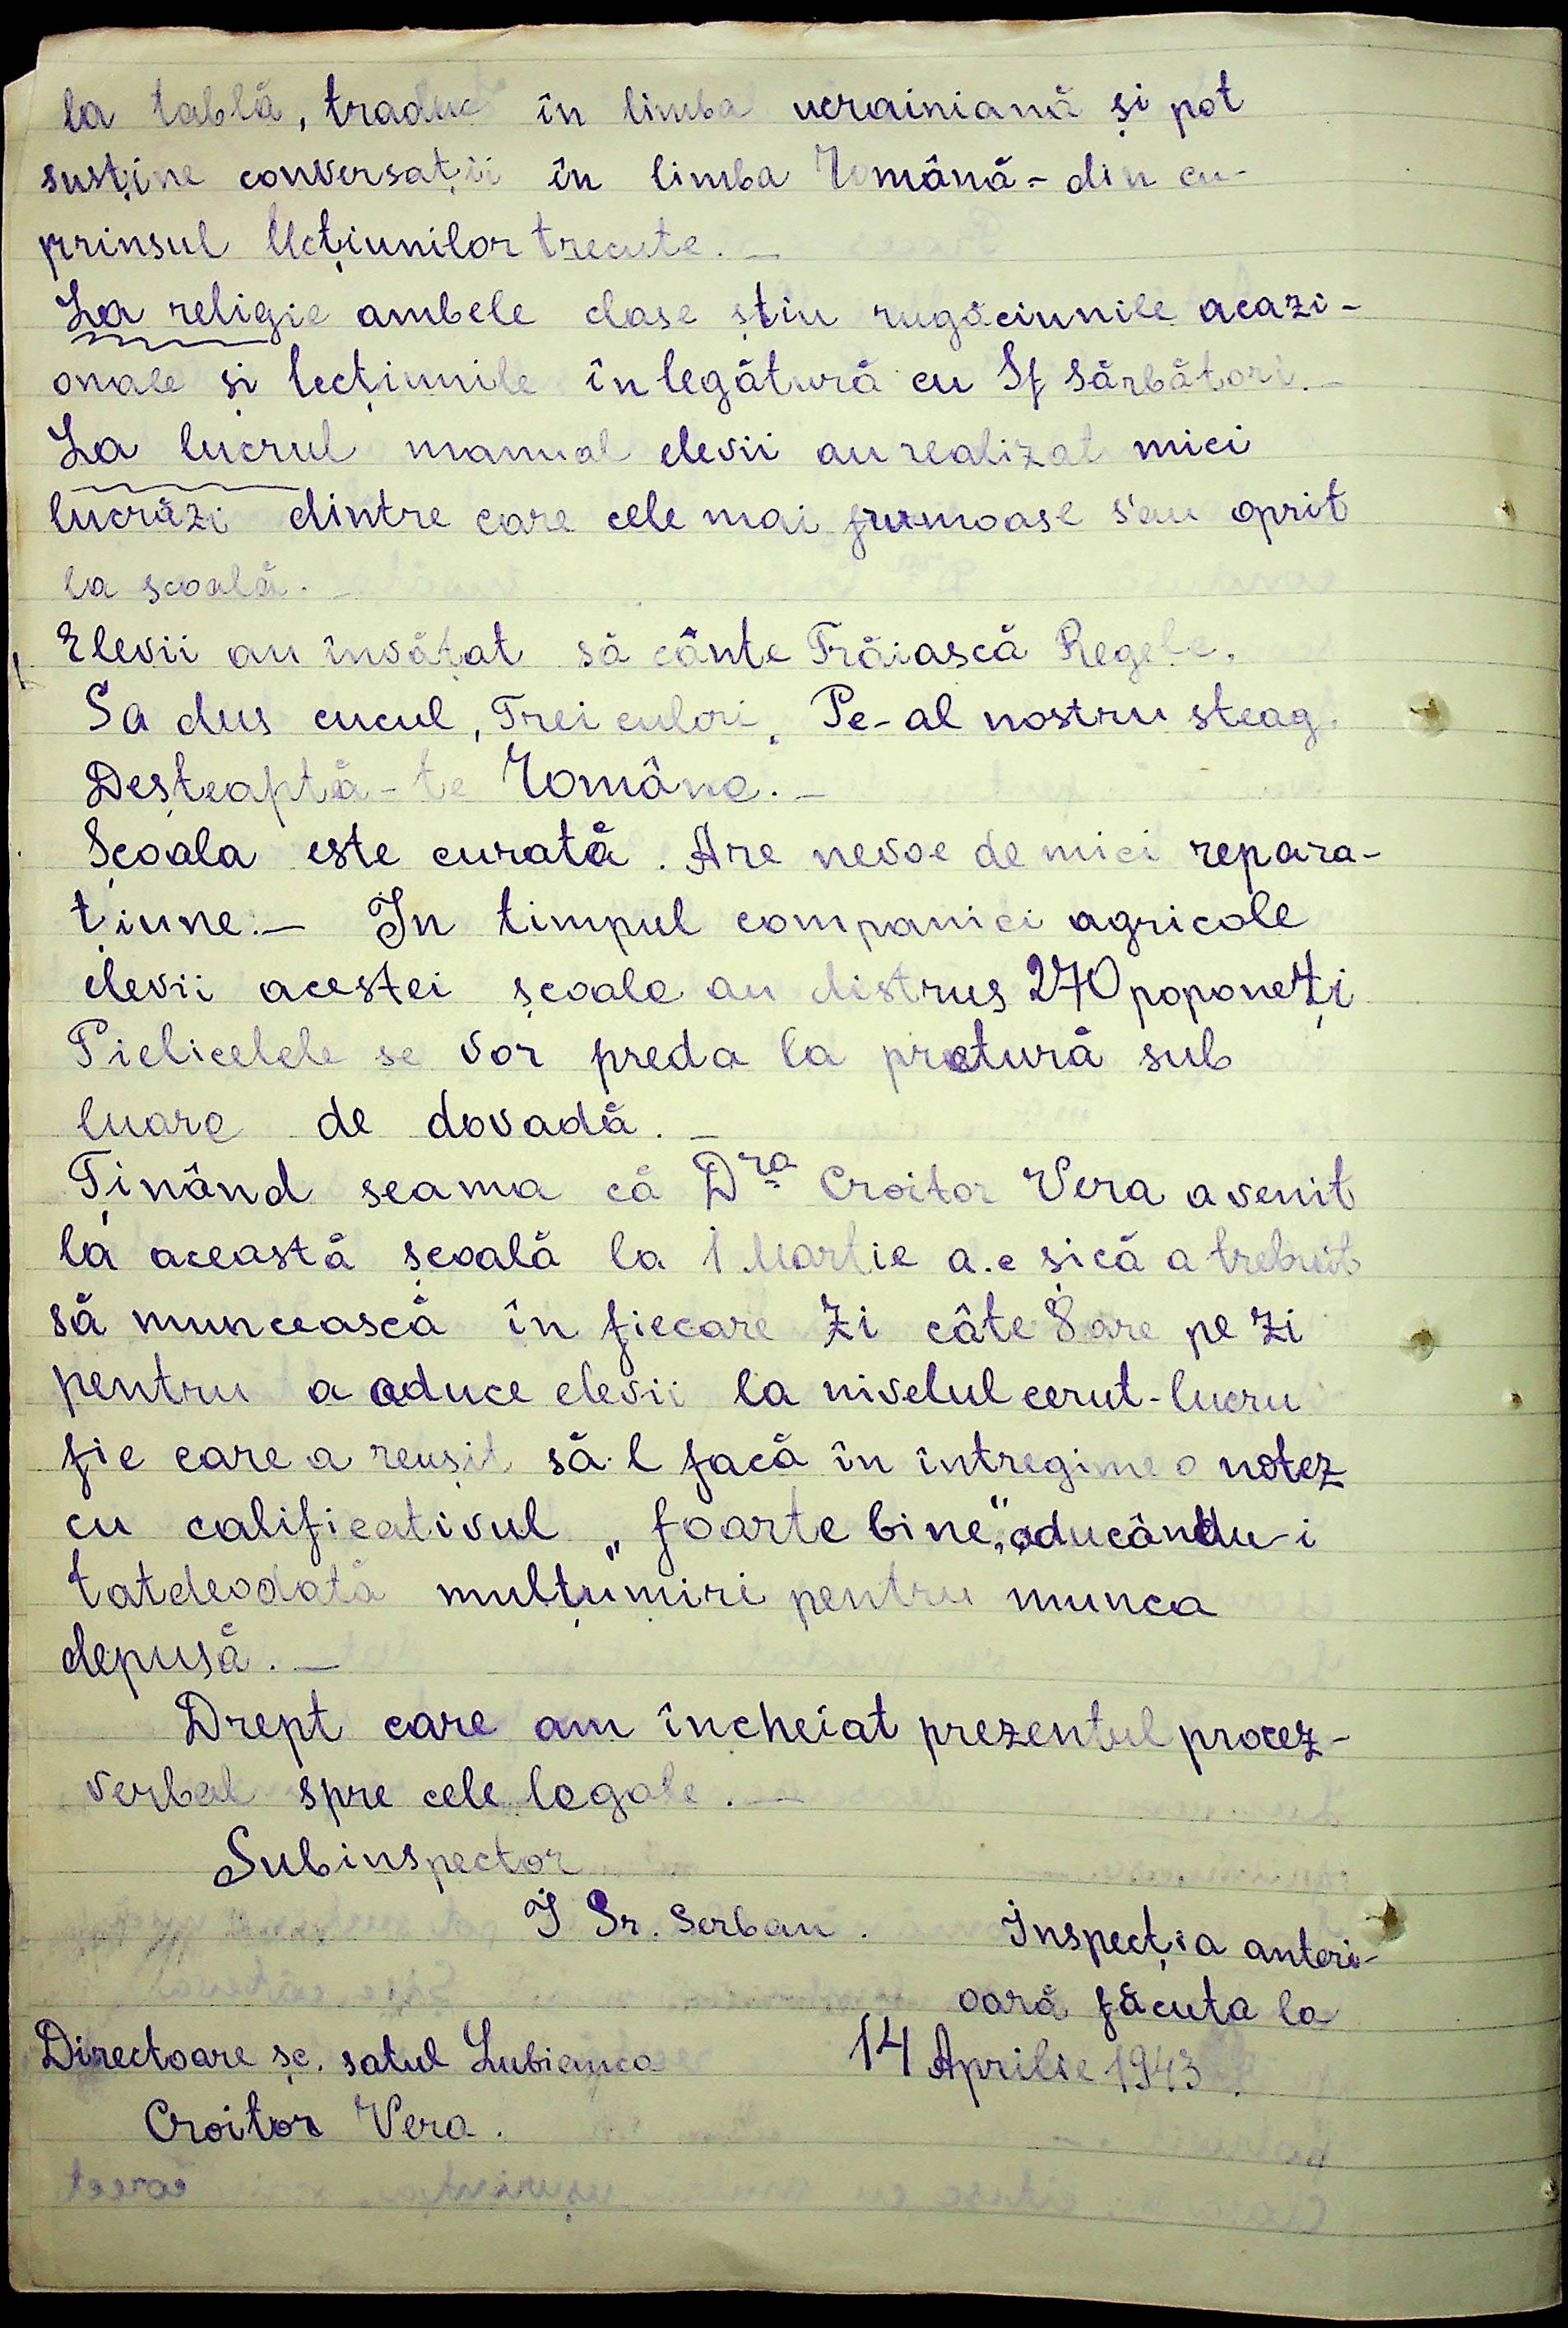 la tablă, traduc în limba ucrainiană și pot
susține conversații în limba Română - din cu-
prinsul lecțiunilor trecute. —
La religie ambele clase știu rugăciunile acazi-
onale și lecțiunile în legătură cu Sf Sărbători. —
La lucrul manual elevii au realizat mici
lucrăzi dintre care cele mai frumoase s'au oprit
la scoală. —
Elevii au învățat să cânte Trăiască Regele.
Sa dus cucul, Trei culori, Pe-al nostru steag.
Deșteaptă-te Române. —
Școala este curată. Are nevoe de mici repara-
țiune. — In timpul companiei agricole
elevii acestei școale au distrus 270 poponeți
Pielicelele se vor preda la pretură sub
luare de dovadă. —
Ținând seama că Dra Croitor Vera a venit
la această școală la 1 Martie a.c și că a trebuit
să muncească în fiecare zi câte 8 are pe zi
pentru a aduce elevii la nivelul cerut - lucru
fie care a reușit să-l facă în întregime o notez
cu calificativul „foarte bine", aducându-i
tatdeodată mulțumiri pentru munca
depusă. —
Drept care am încheiat prezentul procez-
verbal spre cele legale. —
Subinspector
I Gr. Serban.
Inspecția anteri-
oară făcuta la
14 Aprilie 1943.
Directoare șc. satul Lubianca
Croitor Vera.